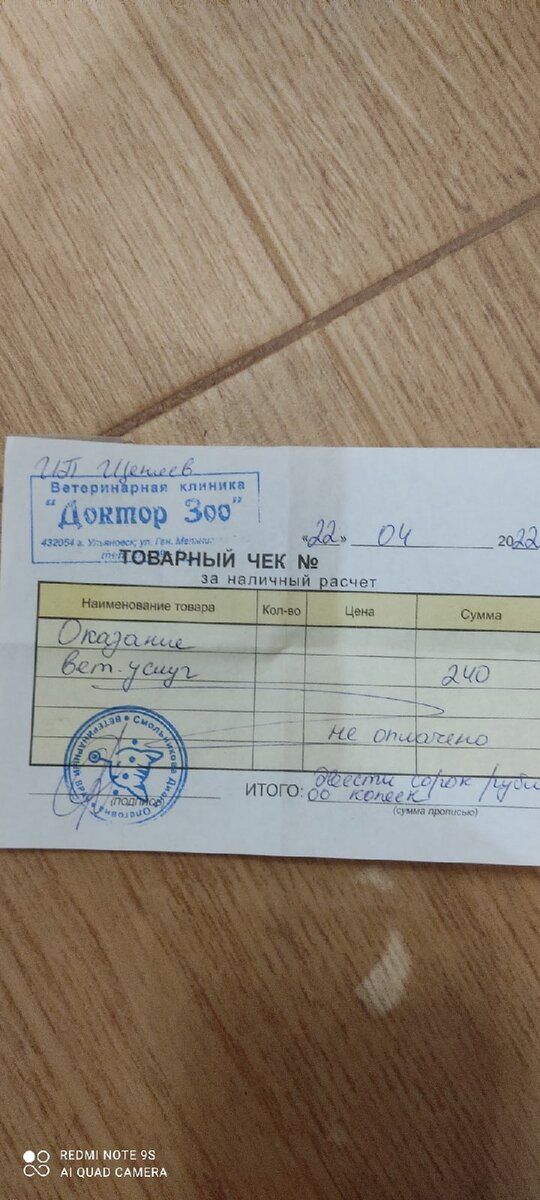 ИП Щеклеев
Ветеринарная клиника
"Доктор Зоо"
432054 г. Ульяновск, ул. Ген.
«22» 04 2022
ТОВАРНЫЙ ЧЕК №
за наличный расчет
Наименование товара Кол-во Цена Сумма
Оказание
вет. услуг 240
не оплачено
ВЕТЕРИНАРНЫЙ ВРАЧ • Смольникова Олеговна •
(подпись)
ИТОГО: двести сорок
00 копеек
(сумма прописью)
REDMI NOTE 9S
AI QUAD CAMERA